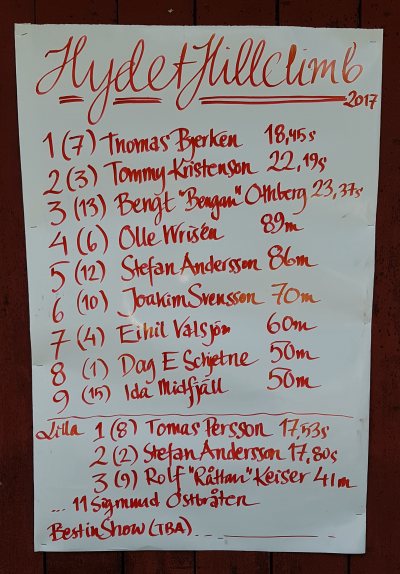 Hydet Hillclimb
2017
1 (7) Thomas Bjerken 18,45s
2 (3) Tommy Kristenson 22,19s
3 (13) Bengt "Bengan" Othberg 23,37s
4 (6) Olle Wrisén 89m
5 (12) Stefan Andersson 86m
6 (10) Joakim Svensson 70m
7 (4) Eihil Valsjön 60m
8 (1) Dag E Schjetne 50m
9 (15) Ida Midfjäll 50m
Lilla 1 (8) Tomas Persson 17,53s
2 (2) Stefan Andersson 17,80s
3 (9) Rolf "Råttan" Keiser 41m
... 11 Sigmund Östbråten
Best in Show (TBA)